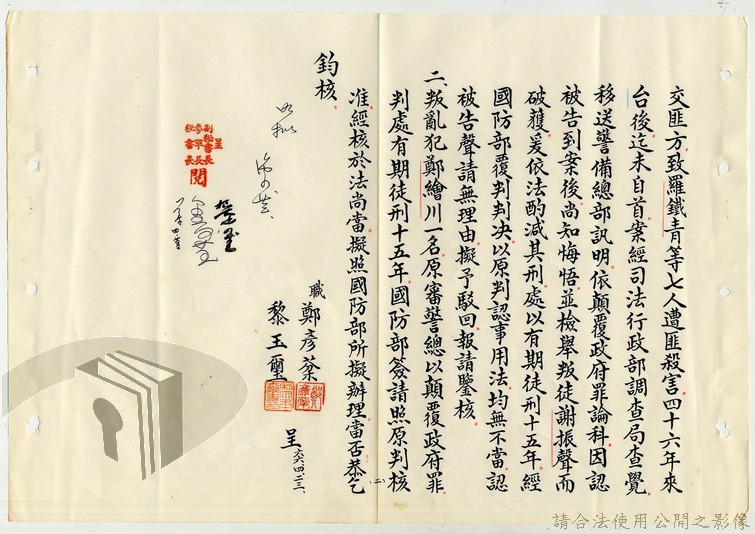 交匪方致羅鐵青等七人遭匪殺害四十六年來
台後迄未自首案經司法行政部調查局查覺
移送警備總部訊明依顛覆政府罪論科因認
被告到案後尚知悔悟並檢舉叛徒謝振聲而
破獲爰依法酌減其刑處以有期徒刑十五年經
國防部覆判判決以原判認事用法均無不當認
被告聲請無理由擬予駁回報請鑒核
二、叛亂犯鄭繪川一名原審警總以顛覆政府罪
判處有期徒刑十五年國防部簽請照原判核
准經核於法尚當擬照國防部所擬辦理當否恭乞
鈞核
職 鄭彥棻
黎玉璽 呈 六六四二三、
(二)
如擬
呈
副秘書長
參軍長
秘書長
閱
請合法使用公開之影像